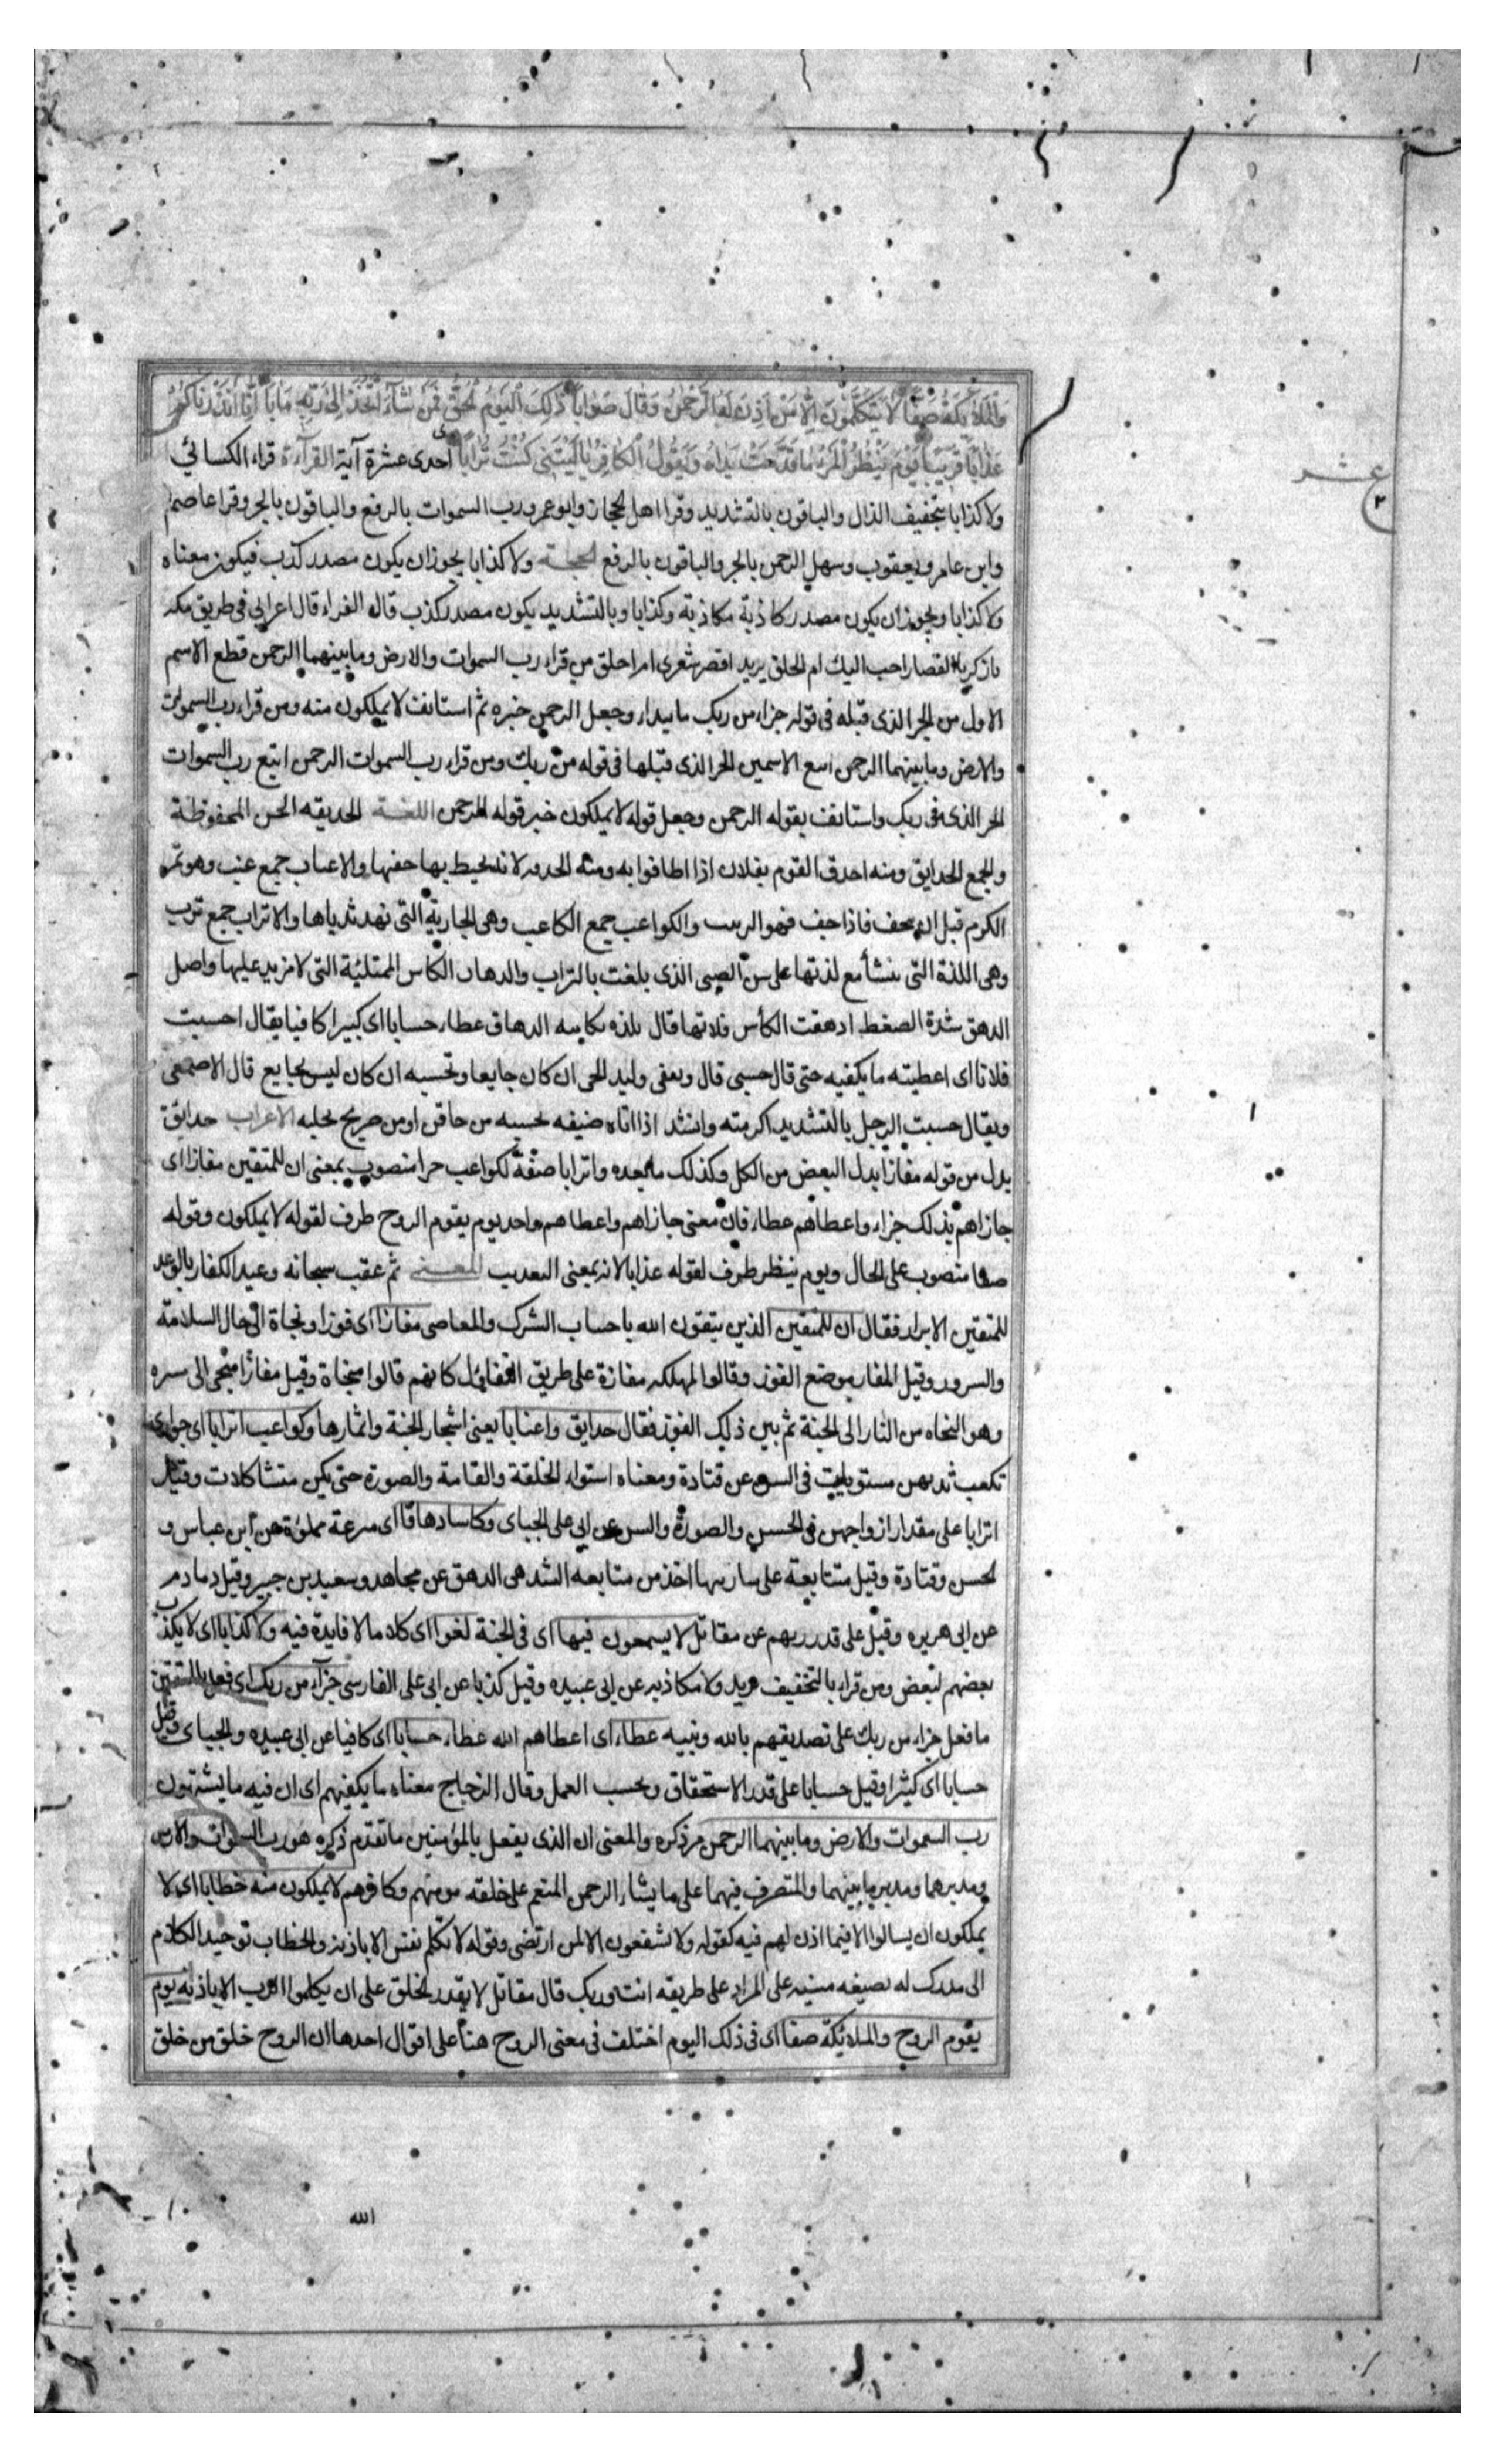 وَالْمَلَائِكَةُ صَفًّا لَا يَتَكَلَّمُونَ إِلَّا مَنْ أَذِنَ لَهُ الرَّحْمٰنُ وَقَالَ صَوَابًا ذٰلِكَ الْيَوْمُ الْحَقُّ فَمَنْ شَاءَ اتَّخَذَ إِلَى رَبِّهِ مَآبًا إِنَّا أَنْذَرْنَاكُمْ
عَذَابًا قَرِيبًا يَوْمَ يَنْظُرُ الْمَرْءُ مَا قَدَّمَتْ يَدَاهُ وَيَقُولُ الْكَافِرُ يَا لَيْتَنِي كُنْتُ تُرَابًا احدى عشرة آية القرآءة قراء الكسائي
عشر
ولا كذابا بتخفيف الذال والباقون بالتشديد وقرا اهل الحجاز وابو عمرو رب السموات بالرفع والباقون بالجر وقرا عاصم
وابن عامر ويعقوب وسهل الرحمن بالجر والباقون بالرفع الحجة ولا كذابا يجوز ان يكون مصدر كذب فيكون معناه
ولا كذابا ويجوز ان يكون مصدر كاذبة مكاذبة وكذابا وبالتشديد يكون مصدر كذب قال الفراء قال اعرابي في طريق مكه
يا زكريا القصار احب اليك ام الحلق يريد اقصر شعرى ام احلق من قراء رب السموات والارض وما بينهما الرحمن قطع الاسم
الاول من الجر الذى قبله فى قوله جزاء من ربك مابتداء وجعل الرحمن خبره ثم استانف لا يملكون منه ومن قراء رب السموات
والارض وما بينهما الرحمن اتبع الاسمين الجر الذى قبلها فى قوله من ربك ومن قراء رب السموات الرحمن اتبع رب السموات
الجر الذى فى ربك واستانف بقوله الرحمن وجعل قوله لا يملكون خبر قوله الرحمن اللغة الحديقه الجن المحفوظة
والجمع الحدايق ومنه احدق القوم بفلان اذا اطافوا به ومنه الحدقه لانه يحيط بها جفنها والاعناب جمع عنب وهو ثمر
الكرم قبل ان يجف فاذا جف فهو الزبيب والكواعب جمع الكاعب وهى الجارية التى نهد ثدياها والاتراب جمع ترب
وهى اللذة التى تنشأ مع لذتها على سن الصبى الذى يلعب بالتراب والدهاق الكأس الممتلئة التى لا مزيد عليها واصل
الدهق شدة الضغط ادهقت الكأس فلاتها قال يلذه بكاسه الدهاق عطاء حسابا اى كبيرا كافيا يقال احسبت
فلانا اى اعطيته ما يكفيه حتى قال حسبى قال ونقفى وليد الحى ان كان جايعا ونحسبه ان كان ليس بجايع قال الاصمعى
ويقال حسبت الرجل بالتشديد اكرمته وانشد اذا اتاه ضيفه يحسبه من حاقن او من صريح يحلبه الاعراب حدايق
بدل من قوله مفازا بدل البعض من الكل وكذلك ما بعده واترابا صفة لكواعب جزا منصوب بمعنى ان للمتقين مفازا اى
جازاهم بذلك جزاء واعطاهم عطاء فان معنى جازاهم واعطاهم واحد يوم يقوم الروح ظرف لقوله لا يملكون وقوله
صفا منصوب على الحال ويوم ينظر ظرف لقوله عذابا لانه بمعنى التعذيب المعنى ثم عقب سبحانه وعيد الكفار بالوعد
للمتقين الابرار فقال ان للمتقين الذين يتقون الله باجتناب الشرك والمعاصى مفازا اى فوزا ونجاة الى حال السلامة
والسرور وقيل المفاز موضع الفوز وقالوا المهلكه مفازة على طريق التفاؤل كانهم قالوا منجاة وقيل مفازا منجى الى مسره
وهو النجاه من النار الى الجنة ثم بين ذلك الفوز فقال حدايق واعنابا يعنى اشجار الجنة واثمارها وكواعب اترابا اى جوارى
تكعب ثديهن مستويات فى السن عن قتادة ومعناه استواء الخلقة والقامة والصورة حتى يكن متشاكلات وقيل
اترابا على مقدار ازواجهن فى الحسن والصورة والسن عن ابى على الجبائى وكاسا دهاقا اى مترعة مملؤة عن ابن عباس و
الحسن وقتادة وقيل متتابعة على شاربيها اخذ من متابعه الشد هى الدهق عن مجاهد وسعيد بن جبير وقيل دمادم
عن ابى هريره وقيل على قدر ريهم عن مقاتل لا يسمعون فيها اى فى الجنة لغوا اى كلاما لا فايدة فيه ولا كذابا اى لا يكذب
بعضهم لبعض ومن قراء بالتخفيف يريد ولا مكاذبه عن ابى عبيده وقيل كذبا عن ابى على الفارسى جزآء من ربك اى فعل بالمتقين
ما فعل جزاء من ربك على تصديقهم بالله ونبيه عطاء اى اعطاهم الله عطاء حسابا اى كافيا عن ابى عبيده والجبائى وقيل
حسابا اى كثيرا وقيل حسابا على قدر الاستحقاق وبحسب العمل وقال الزجاج معناه ما يكفيهم اى ان فيه ما يشتهون
رب السموات والارض وما بينهما الرحمن مر ذكره والمعنى ان الذى يفعل بالمؤمنين ما تقدم ذكره هو رب السموات والارض
ومدبرهما ومدبر ما بينهما والمتصرف فيهما على ما يشاء الرحمن المنعم على خلقه مومنهم وكافرهم لا يملكون منه خطابا اى لا
يملكون ان يسالوا الا فيما اذن لهم فيه كقوله ولا يشفعون الا لمن ارتضى وقوله لا تكلم نفس الا باذنه والخطاب توجيه الكلام
الى مدرك له بصيغه مبنيه على المراد على طريقه انت وربك قال مقاتل لا يقدر الخلق على ان يكلموا الرب الا باذنه يوم
يقوم الروح والملائكة صفا اى فى ذلك اليوم اختلف فى معنى الروح هنا على اقوال احدها ان الروح خلق من خلق
الله